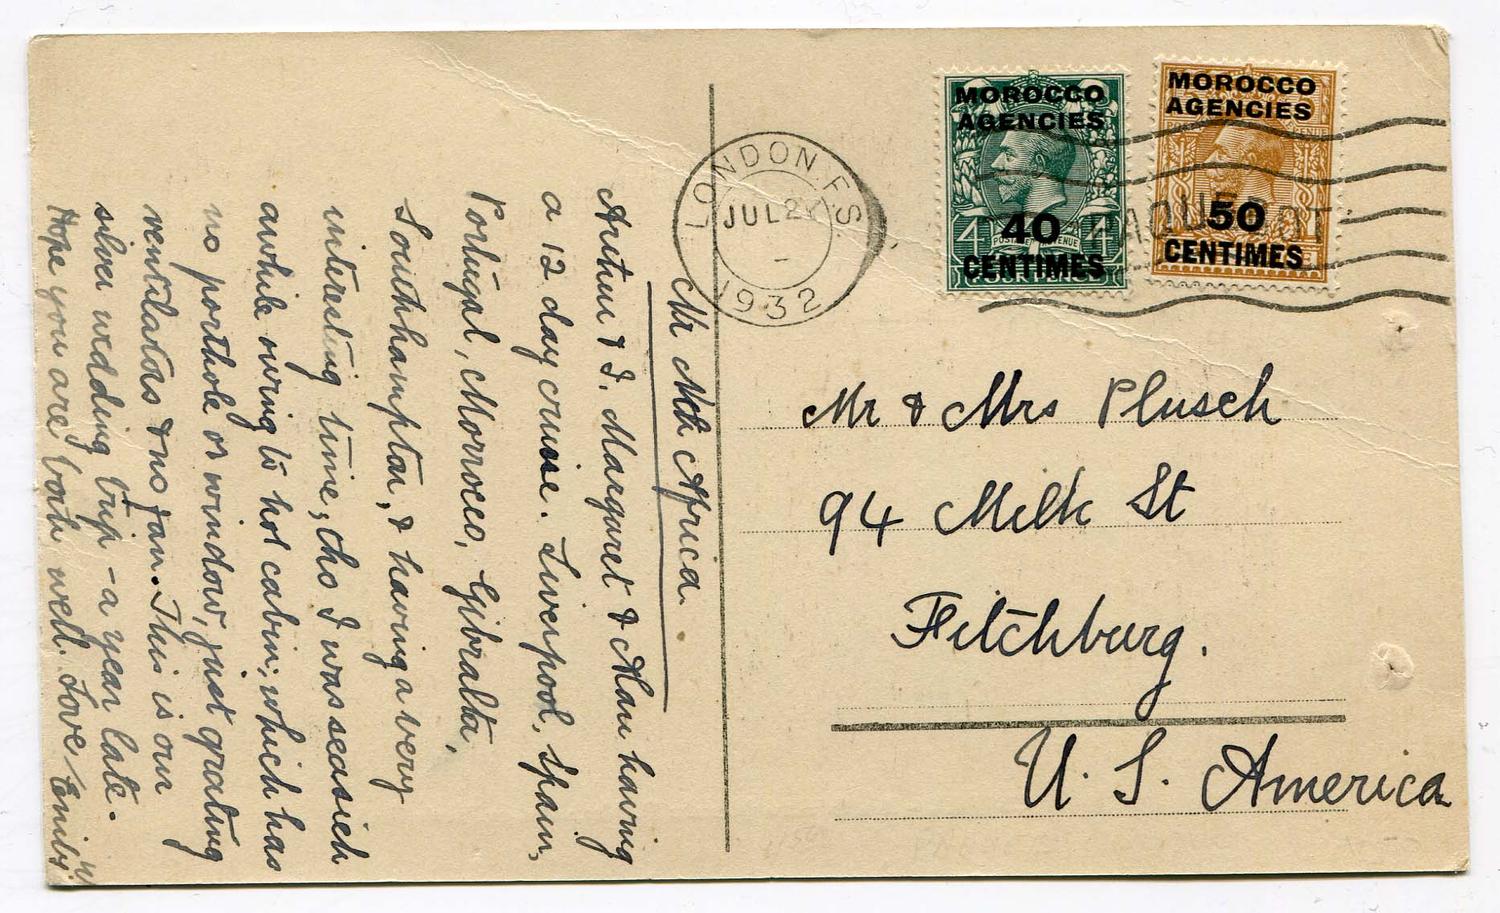 Nr Nth Africa.
Arthur & I. Margaret & Alan having
a 12 day cruise. Liverpool, Spain,
Portugal, Morroco, Gibralta,
Southhampton, & having a very
interesting time, tho I was seasick
awhile owing to hot cabin; which has
no porthole or window, just grating
ventilators & no fan. This is our
silver wedding trip - a year late.
Hope you are both well. Love Emily
LONDON. F.S
JUL
1932
MOROCCO
AGENCIES
40
CENTIMES
4 4
POSTAGE REVENUE
MOROCCO
AGENCIES
50
CENTIMES
PAQUEBOT
Mr & Mrs Plusch
94 Milk St
Fitchburg.
U. S. America